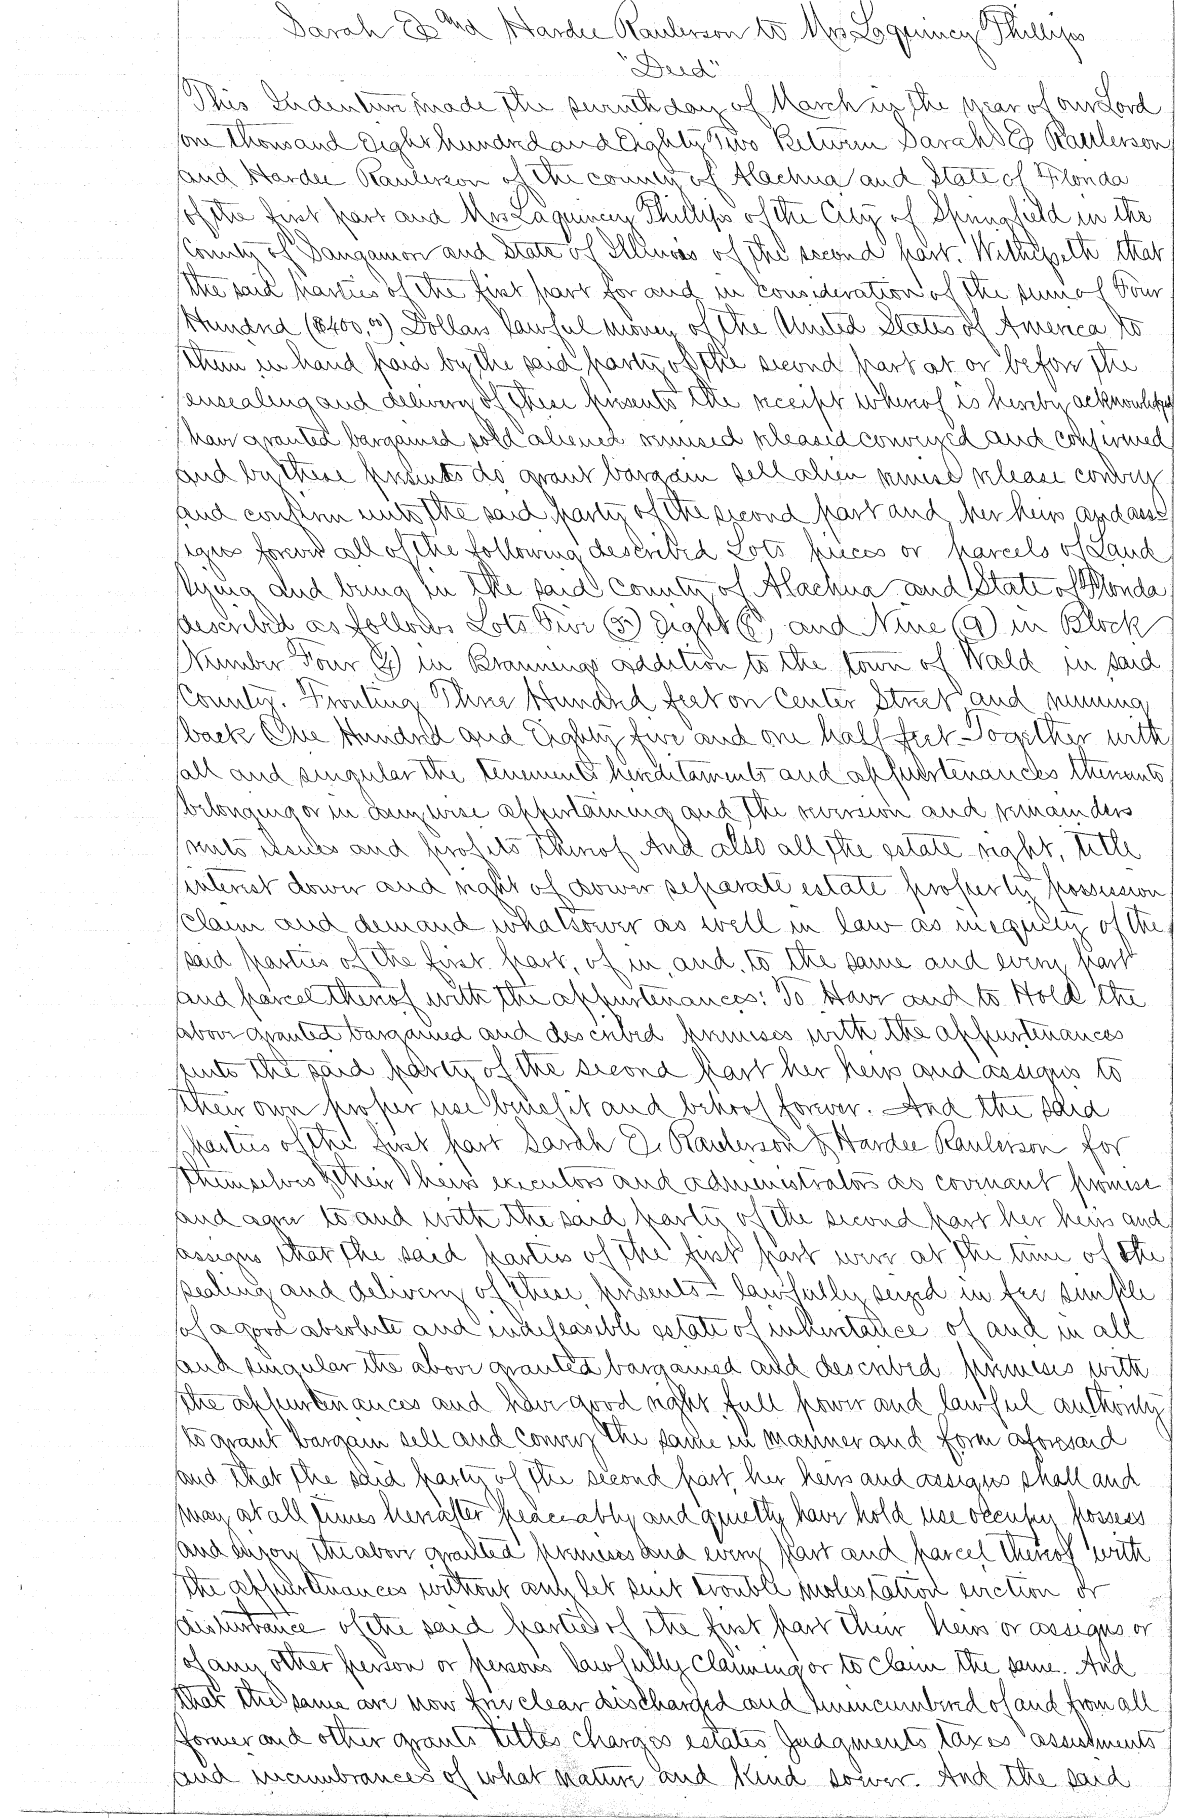 Sarah E and Hardee Raulerson to Mrs Laquincy Phillips
"Deed"
This Indenture made the seventh day of March in the year of our Lord
one thousand Eight hundred and Eighty Two Between Sarah E Raulerson
and Hardee Raulerson of the county of Alachua and State of Florida
of the first part and Mrs Laquincy Phillips of the City of Springfield in the
County of Sangamon and State of Illinois of the second part. Witnesseth that
the said parties of the first part for and in consideration of the sum of Four
Hundred ($400.00) Dollars lawful money of the United States of America to
them in hand paid by the said party of the second part at or before the
ensealing and delivery of these presents the receipt whereof is hereby acknowledged
have granted bargained sold aliened remised released conveyed and confirmed
and by these presents do grant bargain sell alien remise release convey
and confirm unto the said party of the second part and her heirs and ass
igns forever all of the following described Lots pieces or parcels of Land
lying and being in the said county of Alachua and State of Florida
described as follows Lots Five (5) Eight (8) and Nine (9) in Block
Number Four (4) in Brannings addition to the town of Waldo in said
County. Fronting Three Hundred feet on Center Street and running
back One Hundred and Eighty five and one half feet - Together with
all and singular the tenements hereditaments and appurtenances thereunto
belonging or in anywise appertaining and the reversion and remainders
rents issues and profits thereof And also all the estate right, title
interest dower and right of dower separate estate property possession
claim and demand whatsoever as well in law as in equity of the
said parties of the first part, of in, and, to the same and every part
and parcel thereof with the appurtenances: To Have and to Hold the
above granted bargained and described premises with the appurtenances
unto the said party of the second part her heirs and assigns to
their own proper use benefit and behoof forever. And the said
parties of the first part Sarah E. Raulerson & Hardee Raulerson for
themselves & their heirs executors and administrators do covenant promise
and agree to and with the said party of the second part her heirs and
assigns that the said parties of the first part were at the time of the
sealing and delivery of these presents lawfully seized in fee simple
of a good absolute and indefeasible estate of inheritance of and in all
and singular the above granted bargained and described premises with
the appurtenances and have good right full power and lawful authority
to grant bargain sell and convey the same in manner and form aforesaid
and that the said party of the second part, her heirs and assigns shall and
may at all times hereafter peaceably and quietly have hold use occupy possess
and enjoy the above granted premises and every part and parcel thereof with
the appurtenances without any let suit trouble molestation eviction or
disturbance of the said parties of the first part their heirs or assigns or
of any other person or persons lawfully claiming or to claim the same. And
that the same are now free clear discharged and unincumbered of and from all
former and other grants titles charges estates Judgments taxes assessments
and incumbrances of what nature and kind soever. And the said